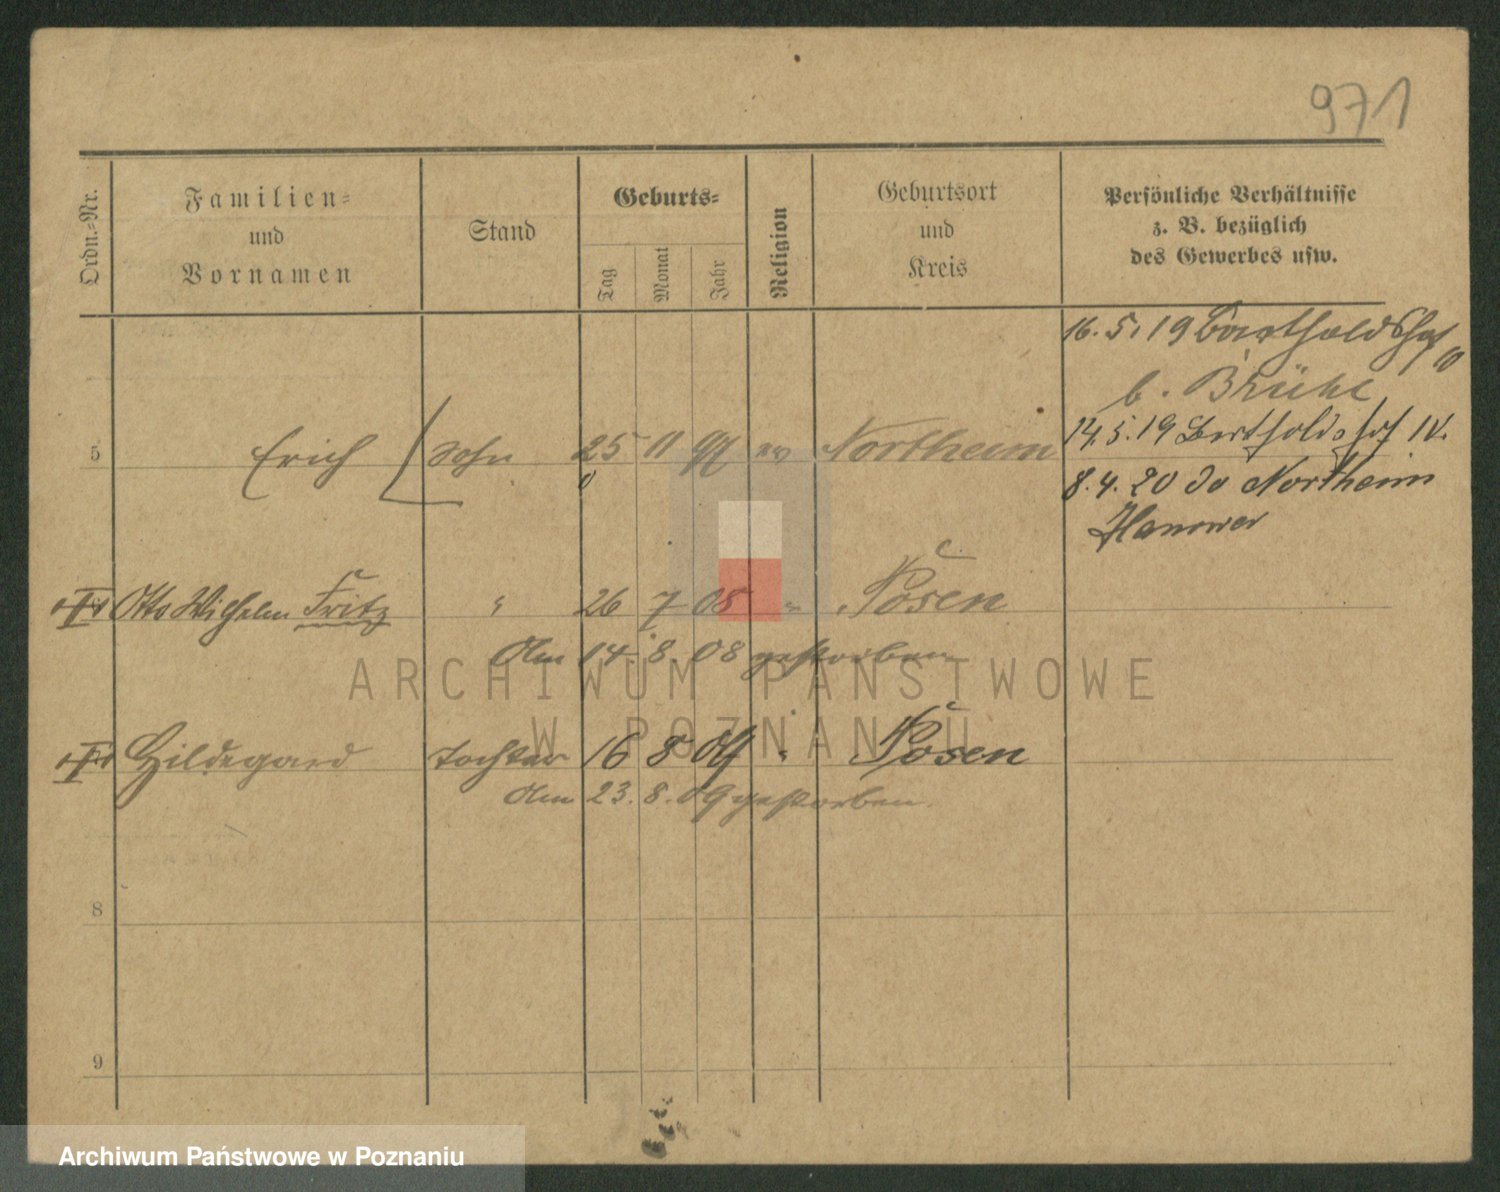 971
Ordn.=Nr.
Familien=
und
Vornamen
Stand
Geburts=
Tag
Monat
Jahr
Religion
Geburtsort
und
Kreis
Persönliche Verhältnisse
z. B. bezüglich
des Gewerbes usw.
16. 5. 19 Bartholdshof
b. Brühl
5 Erich Sohn 25 11 ev Northeim
14. 5. 19 Bertholdshof IV.
8. 4. 20 do Northeim
Hanower
Otto Wilhelm Fritz " 26 7 08 " Posen
Am 14. 8. 08 gestorben
Hildegard Tochter 16 8 09 " Posen
Am 23. 8. 09 gestorben.
8
9
ARCHIWUM PAŃSTWOWE
W POZNANIU
Archiwum Państwowe w Poznaniu